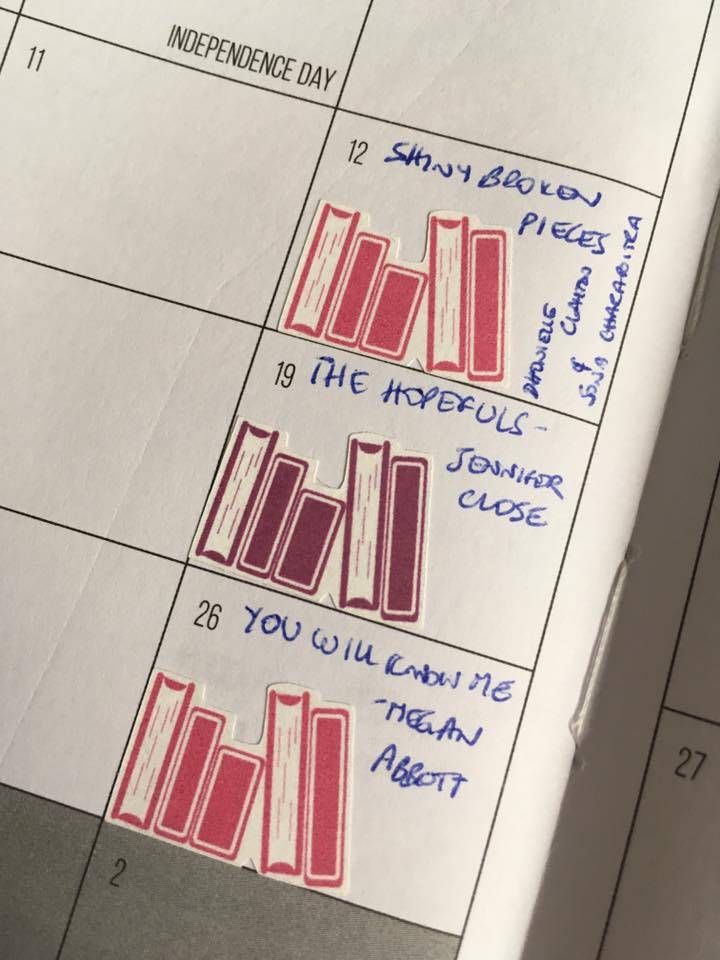 INDEPENDENCE DAY
11
12 SHINY BROKEN
PIECES
DHONIELLE
CLAYTON
&
SONA CHARAIPOTRA
19 THE HOPEFULS -
JENNIFER
CLOSE
26 YOU WILL KNOW ME
-MEGAN
ABBOTT
27
2